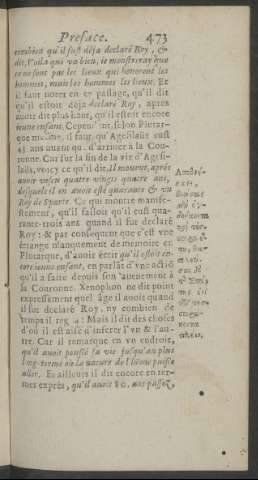 Preface. 473
combien qu'il fust déja declaré Roy, &
dit, Voila qui va bien, je monstreray que
ce ne sont pas les lieux qui honorent les
hommes, mais les hommes les lieux. Et
il faut noter en ce passage, qu'il dit
qu'il estoit déja declaré Roy, apres
avoir dit plus haut, qu'il estoit encore
jeune enfant. Cependant, selon Plutar-
que mesme, il faut, qu'Agesilaüs eust
43 ans avant qu'd'arriver à la Cou-
ronne. Car sur la fin de la vie d'Agesi-
laüs, voicy ce qu'il dit. Il mourut, aprés
avoir vescu quatre-vingts quatre ans,
desquels il en avoit esté quarante & un
Roy de Sparte. Ce qui montre mani-
festement, qu'il falloit qu'il eust qua-
rante-trois ans quand il fut declaré
Roy: & par consequent que c'est une
étrange manquement de memoire en
Plutarque, d'avoir écrit qu'il estoit en-
core jeune enfant, en parlāt d'vne actiō
qu'il a faite depuis son avenement à
la Couronne. Xenophon ne dit point
expressement quel âge il avoit quand
il fut declaré Roy, ny combien de
temps il regna: Mais il dit des choses
d'où il est aisé d'inferer l'vn & l'au-
tre. Car il remarque en vn endroit,
qu'il avoit poussé sa vie jusqu'au plus
long-terme où la nature de l'homme puisse
aller. Et ailleurs il dit encore en ter-
mes exprés, qu'il avoit 80. ans passez,